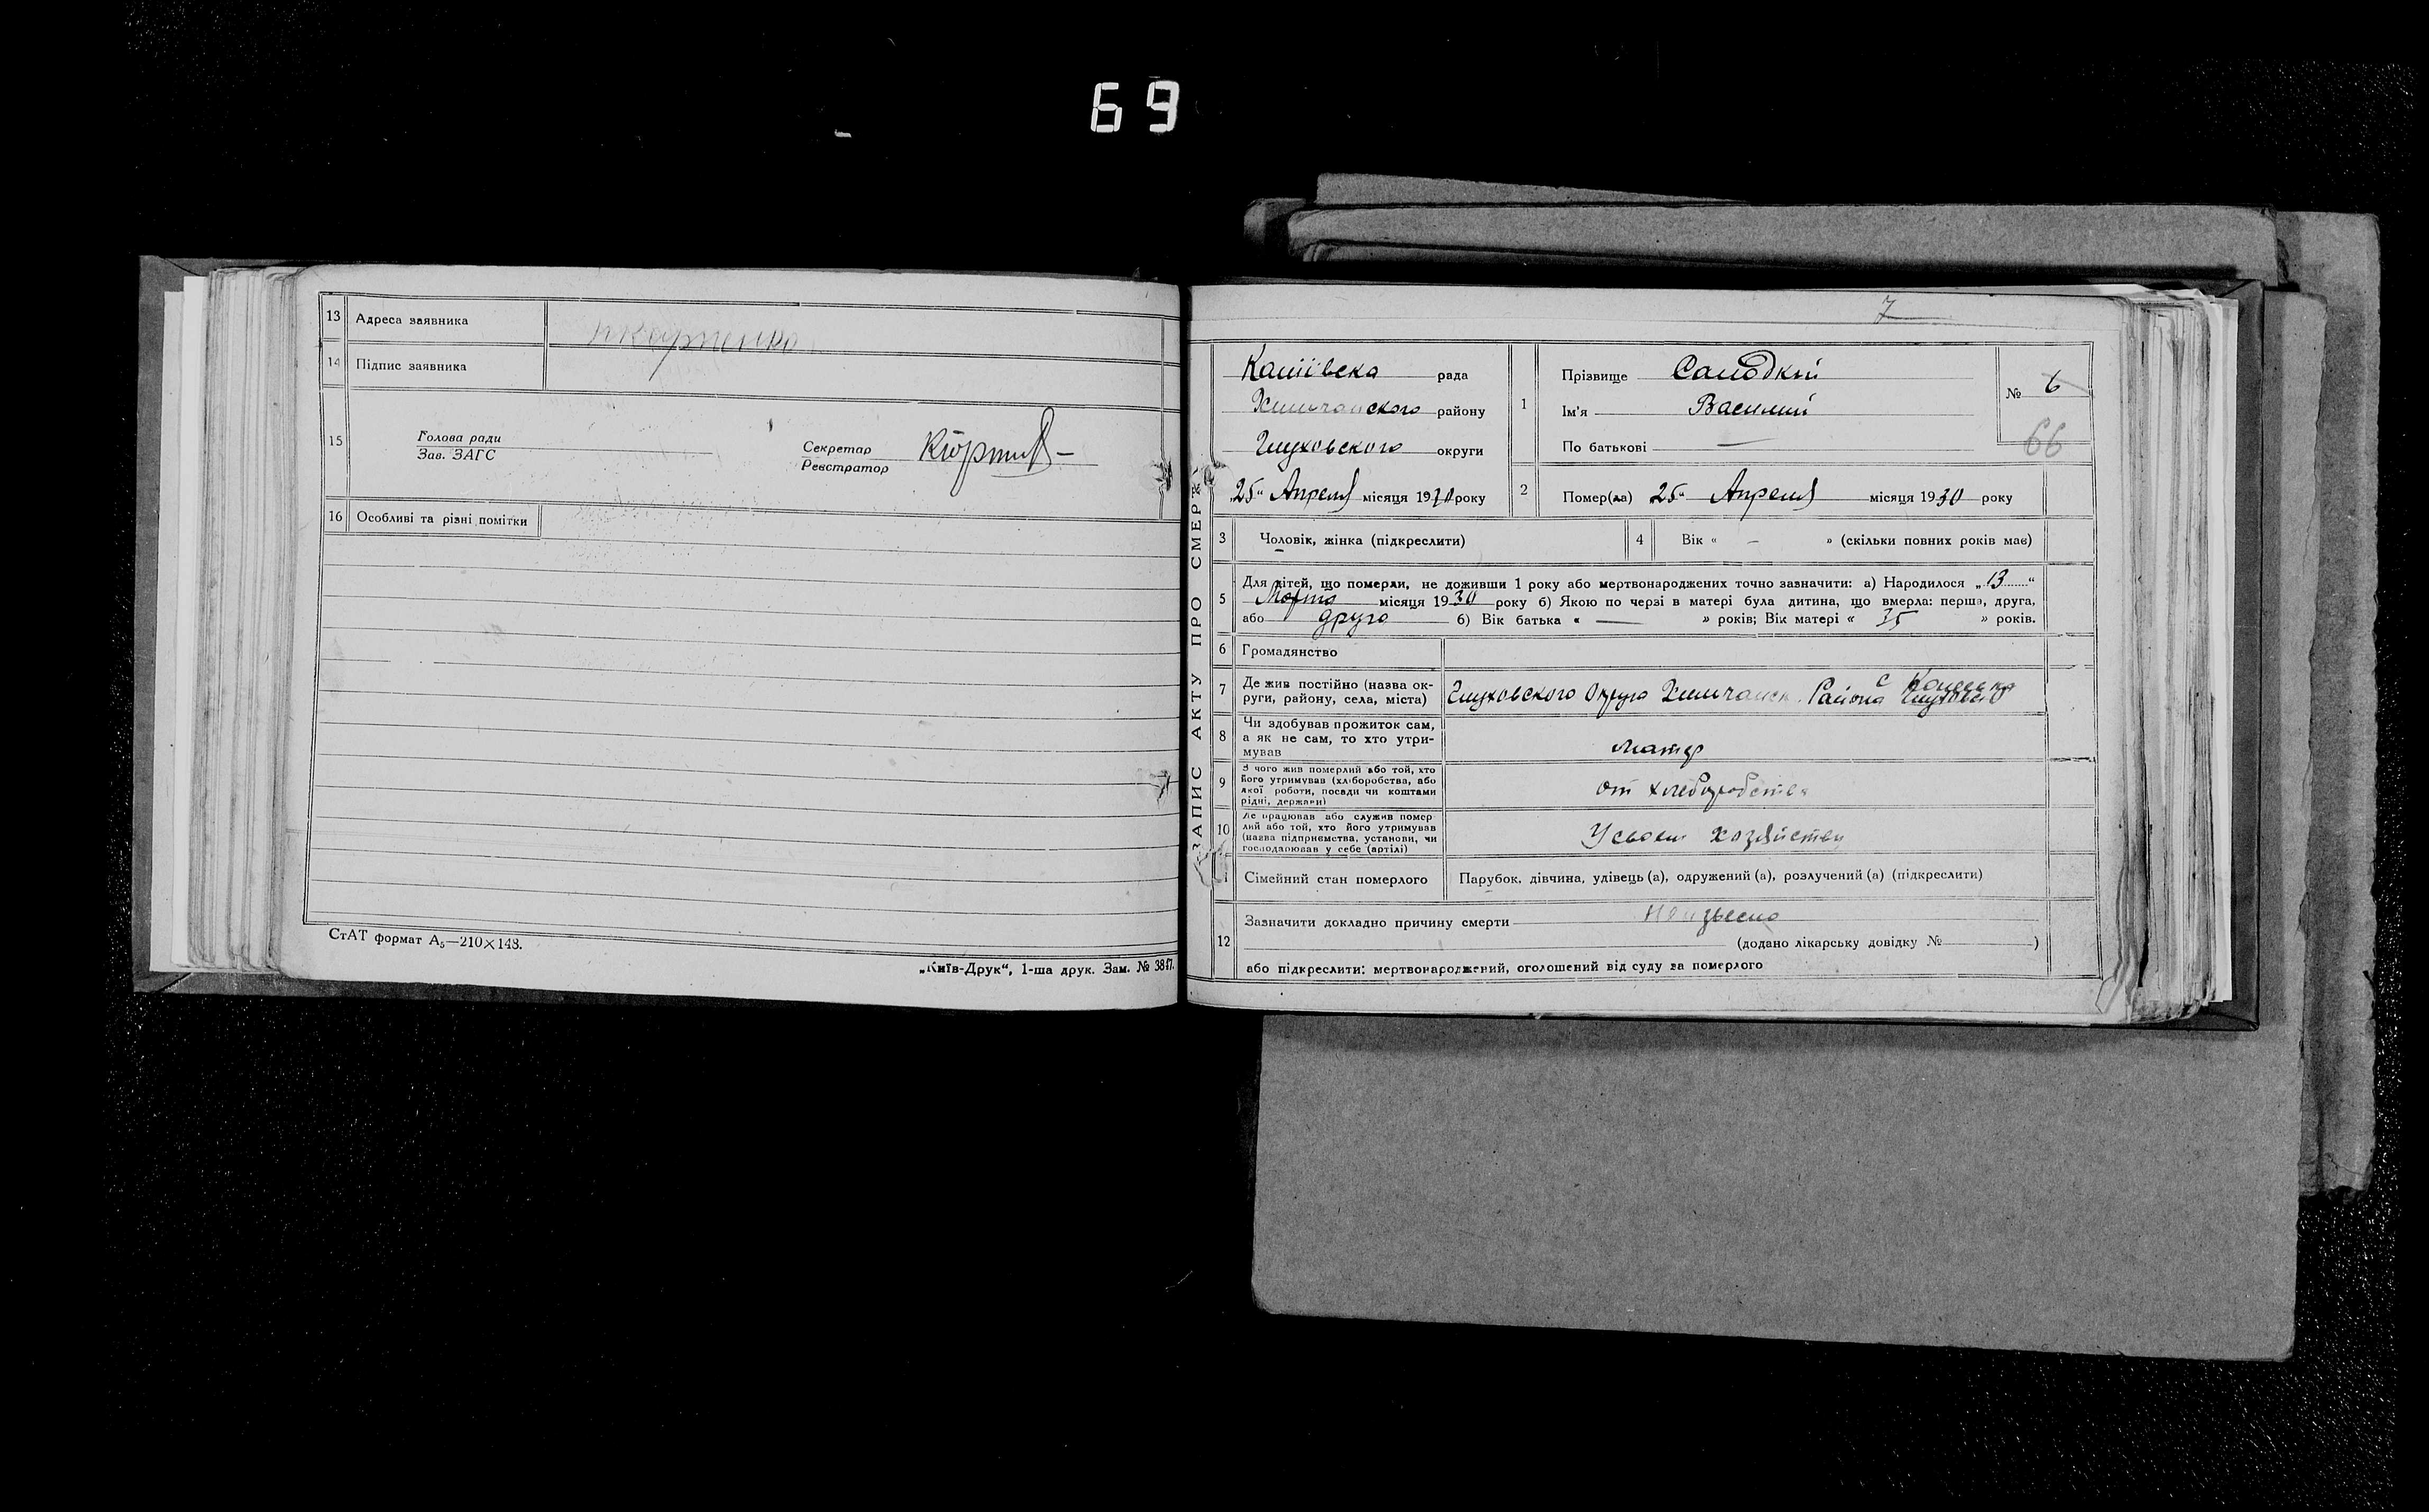 69
13 Адреса заявника
14 Підпис заявника
15 Голова ради
Зав. ЗАГС
Секретар
Реєстратор
16 Особливі та різні помітки
СтАТ формат А5—210×148.
„Київ-Друк“, 1-ша друк. Зам. № 3847.
7
ЗАПИС АКТУ ПРО СМЕРТЬ
рада
району
Глуховского округи
25“ Апреля місяця 1930 року
1 Прізвище
Ім'я Василий
По батькові —
№ 6
66
2 Помер(ла) 25“ Апреля місяця 1930 року
3 Чоловік, жінка (підкреслити)
4 Вік « – » (скільки повних років має)
5 Для дітей, що померли, не доживши 1 року або мертвонароджених точно зазначити: а) Народилося „13“
Марта місяця 1930 року б) Якою по черзі в матері була дитина, що вмерла: перша, друга,
або друга б) Вік батька « — » років; Вік матері « 35 » років.
6 Громадянство
7 Де жив постійно (назва ок-
руги, району, села, міста) Глуховского Округа Района с
8 Чи здобував прожиток сам,
а як не сам, то хто утри-
мував матер
9 З чого жив померлий або той, хто
його утримував (хліборобства, або
якої роботи, посади чи коштами
рідні, держави) от
10 Де працював або служив помер
лий або той, хто його утримував
(назва підприємства, установи, чи
господарював у себе (артілі) У своем хозяйстви
Сімейний стан померлого Парубок, дівчина, удівець (а), одружений (а), розлучений (а) (підкреслити)
12 Зазначити докладно причину смерти
(додано лікарську довідку № )
або підкреслити: мертвонароджений, оголошений від суду за померлого